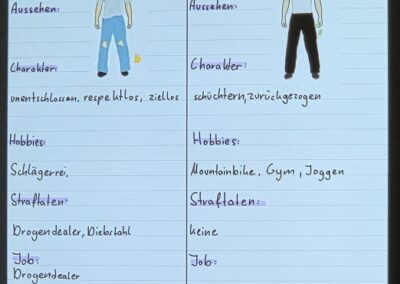 Aussehen:
Charakter:
unentschlossen, respektlos, ziellos
Hobbies:
Schlägerrei,
Straftaten:
Drogendealer, Diebstahl
Job:
Drogendealer
Aussehen:
Charakter:
schüchtern, zurückgezogen
Hobbies:
Mountainbike, Gym, Joggen
Straftaten:
keine
Job: